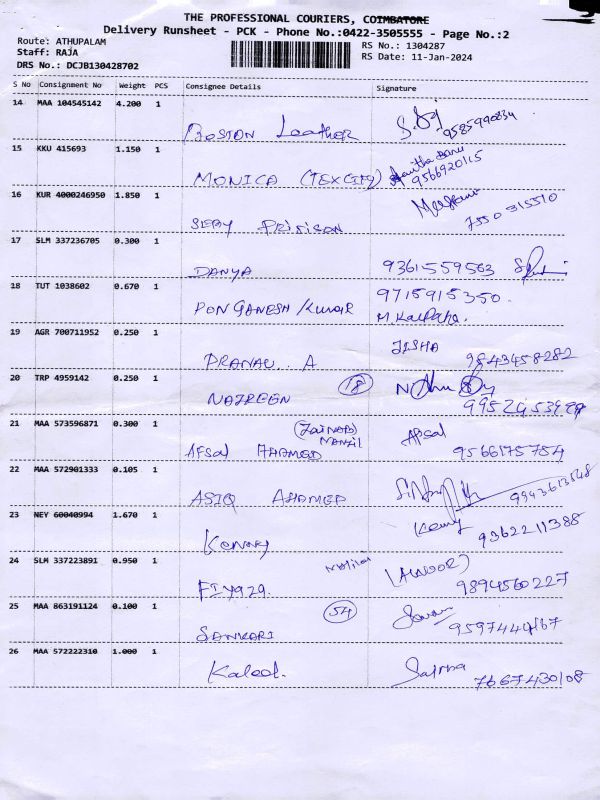 THE PROFESSIONAL COURIERS, COIMBATORE
Delivery Runsheet - PCK - Phone No.:0422-3505555 - Page No.:2
Route: ATHUPALAM
Staff: RAJA
DRS No.: DCJB130428702
RS No.: 1304287
RS Date: 11-Jan-2024
S No Consignment No Weight PCS Consignee Details Signature
14 MAA 104545142 4.200 1
BOSTON Leather 9585990834
15 KKU 415693 1.150 1
MONICA (TEXCITY) 9566920115
16 KUR 4000246950 1.850 1
7550315510
17 SLM 337236705 0.300 1
DANYA 9361559563
18 TUT 1038602 0.670 1
PON GANESH Kumar 9715915350.
M Kalpana.
19 AGR 700711952 0.250 1
PRANAV. A JISHA 9843458282
20 TRP 4959142 0.250 1
NAJREEN 18
21 MAA 573596871 0.300 1
(ZAINAB) Manzil
AFSal AHAMED Afsal 9566175754
22 MAA 572901333 0.105 1
ASIQ AHAMED 9943613548
23 NEY 60040994 1.670 1
Kenny Kenny 9362211388
24 SLM 337223891 0.950 1
9894560227
25 MAA 863191124 0.100 1
SANKARI 54
26 MAA 572222310 1.000 1
Kaleel. 7667430108